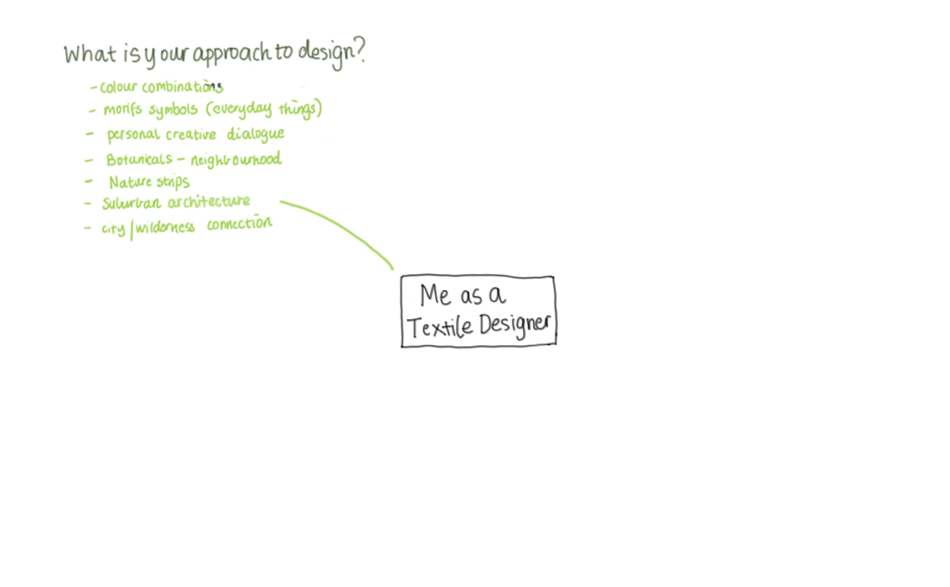 What is your approach to design?
- colour combinations
- motifs symbols (everyday things)
- personal creative dialogue
- Botanicals - neighbourhood
- Nature strips
- Suburban architecture
- city/wilderness connection
Me as a
Textile Designer